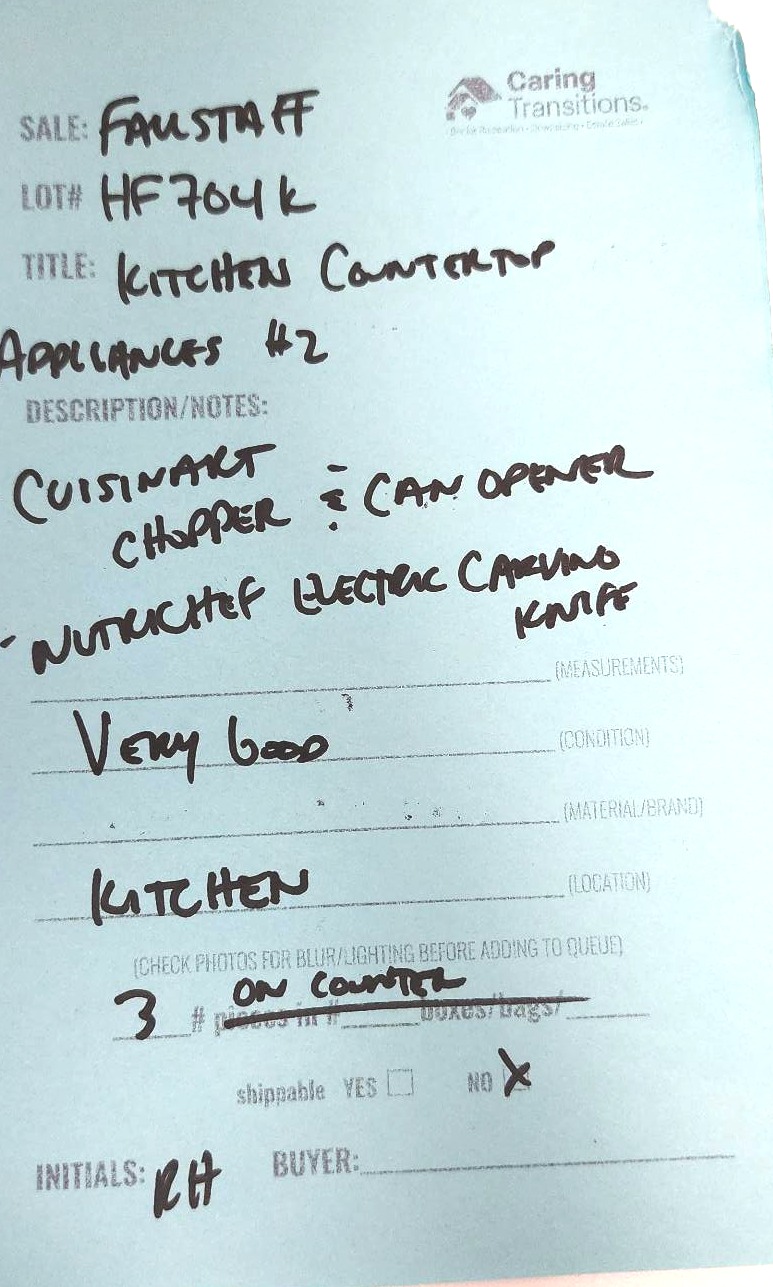 Caring
Transitions®
SALE: FALLSTAFF
LOT# HF704K
TITLE: KITCHEN COUNTERTOP
APPLIANCES #2
DESCRIPTION/NOTES:
CUISINART
CHOPPER & CAN OPENER
NUTRICHEF ELECTRIC CARVING
KNIFE
(MEASUREMENTS)
VERY GOOD (CONDITION)
(MATERIAL/BRAND)
KITCHEN (LOCATION)
(CHECK PHOTOS FOR BLUR/LIGHTING BEFORE ADDING TO QUEUE)
ON COUNTER
3 # pieces in # boxes/bags/
shippable YES NO X
INITIALS: RH BUYER: